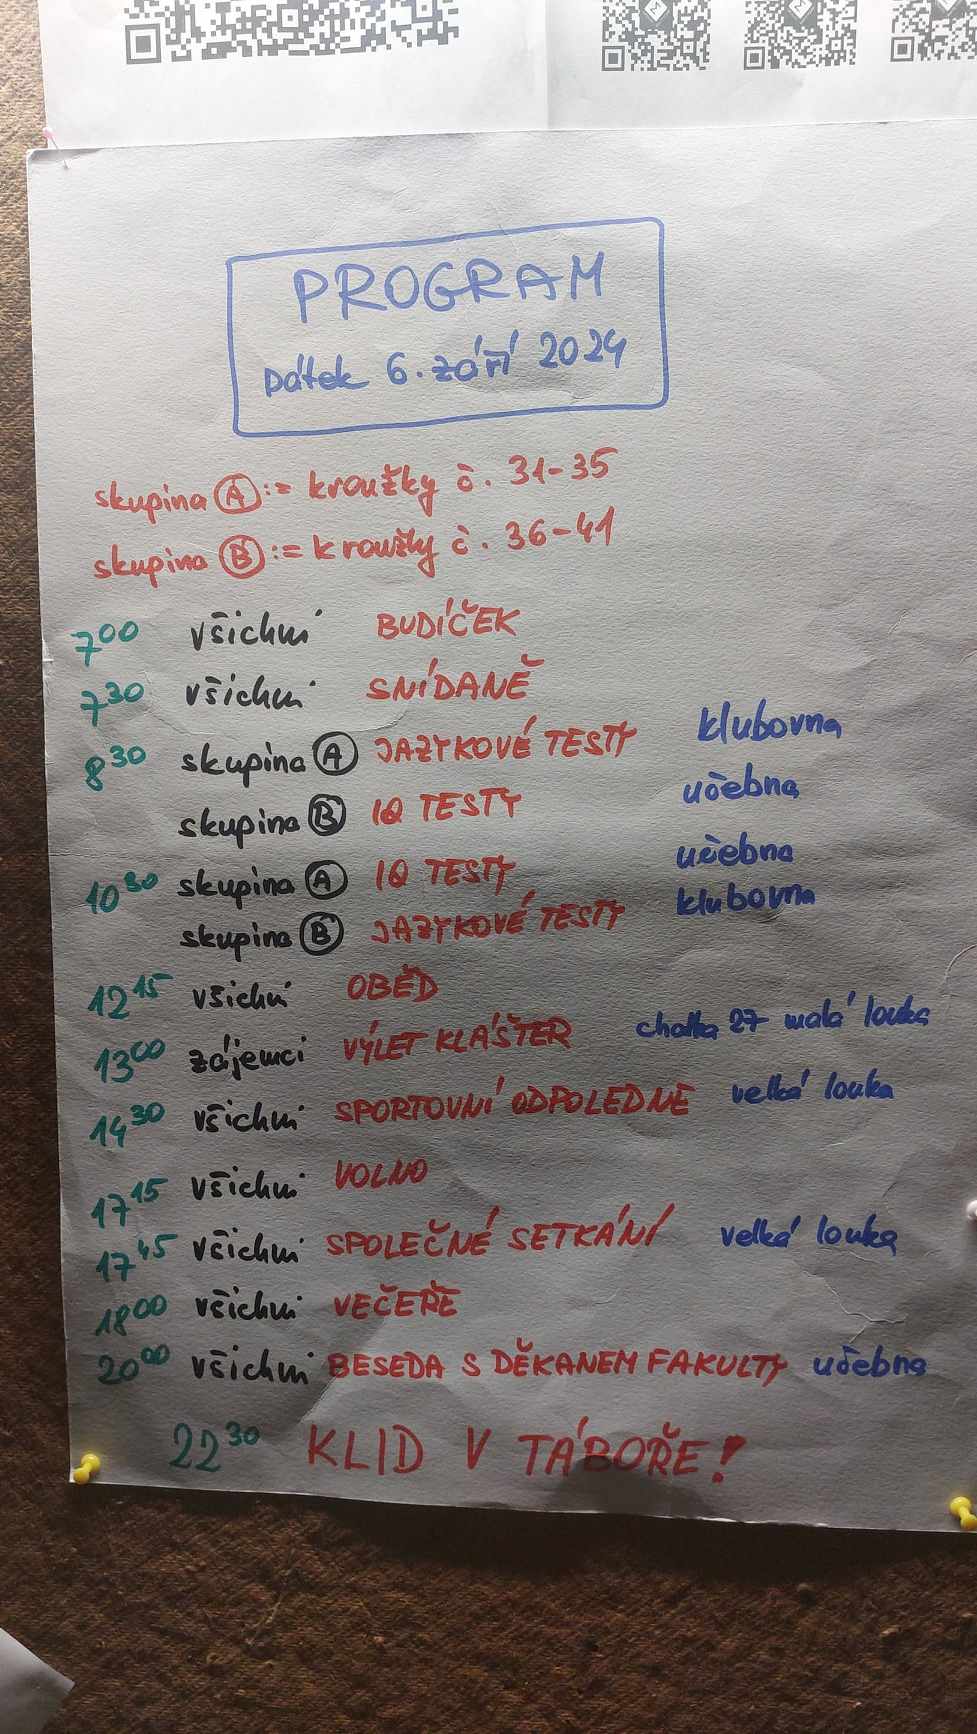 PROGRAM
Pátek 6. září 2024
skupina A := kroužky č. 31-35
skupina B := kroužky č. 36-41
7 00 všichni BUDÍČEK
7 30 všichni SNÍDANĚ
8 30 skupina A JAZYKOVÉ TESTY klubovna
skupina B IQ TESTY učebna
10 30 skupina A IQ TESTY učebna
skupina B JAZYKOVÉ TESTY klubovna
12 15 všichni OBĚD
13 00 zájemci VÝLET KLÁŠTER chatka 27 malá louka
14 30 všichni SPORTOVNÍ ODPOLEDNE velká louka
17 15 všichni VOLNO
17 45 všichni SPOLEČNÉ SETKÁNÍ velká louka
18 00 všichni VEČEŘE
20 00 všichni BESEDA S DĚKANEM FAKULTY učebna
22 30 KLID V TÁBOŘE!